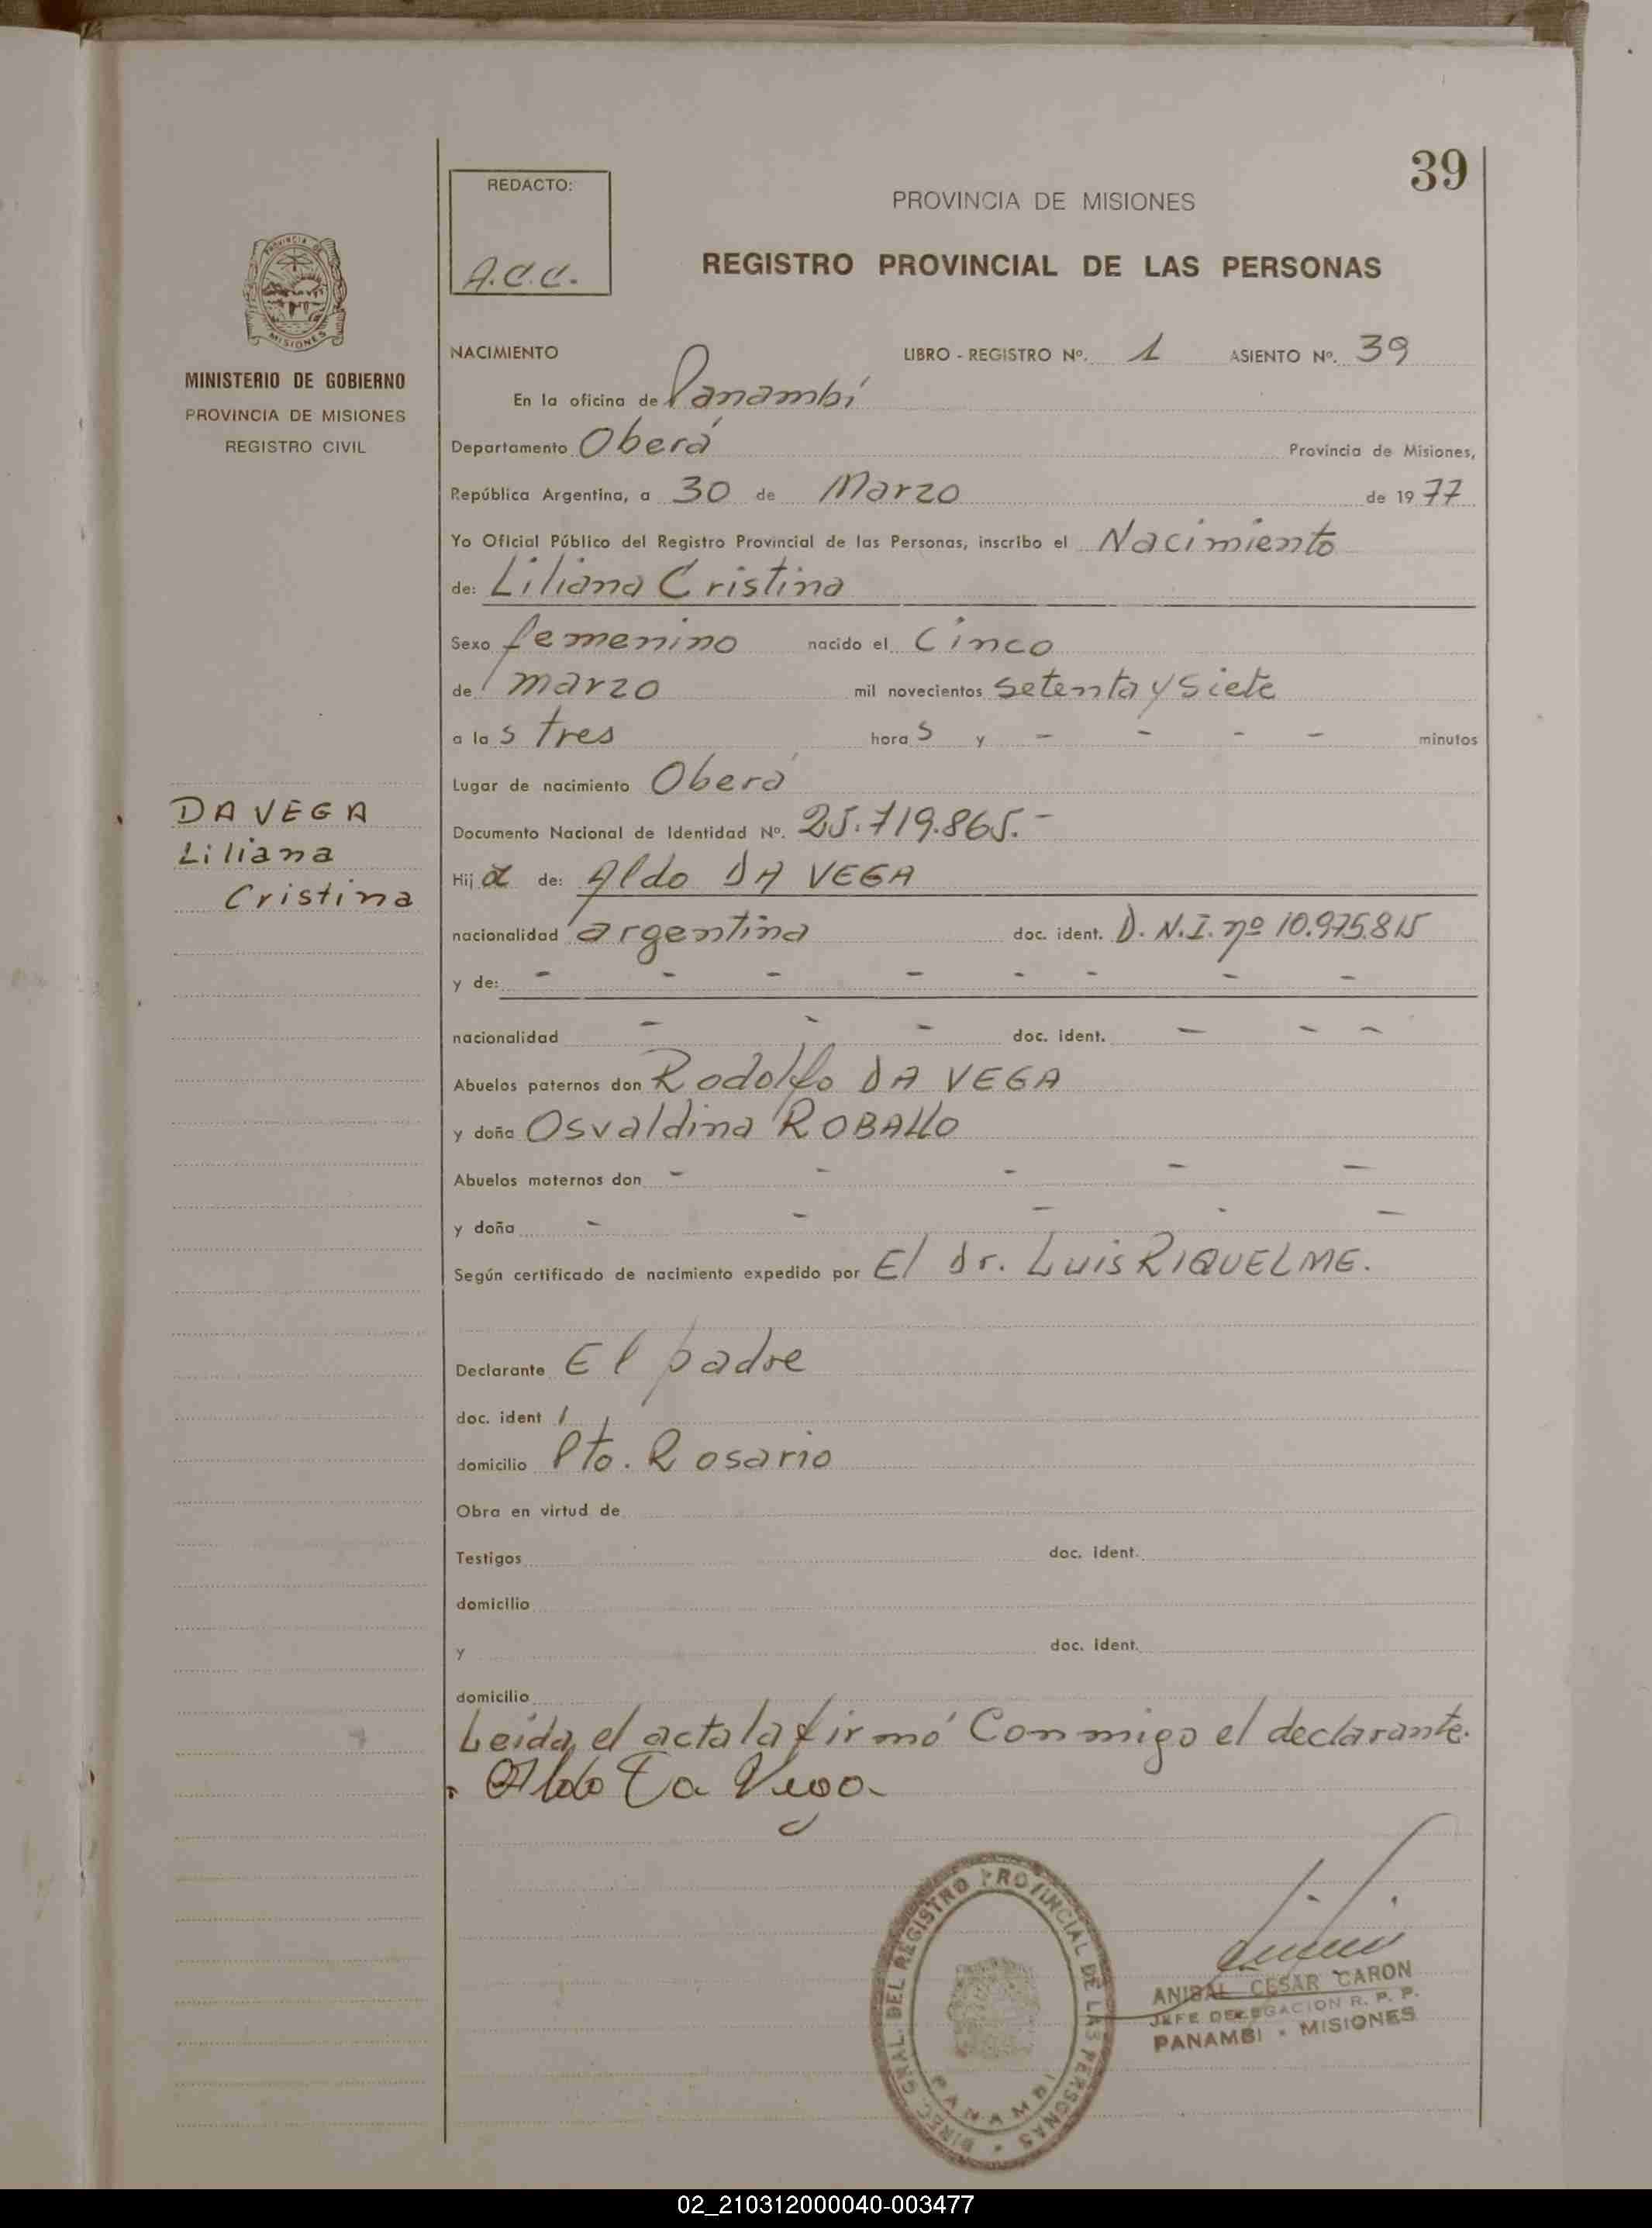 39
REDACTO:
A.C.C.
PROVINCIA DE MISIONES
REGISTRO PROVINCIAL DE LAS PERSONAS
PROVINCIA DE
MISIONES
MINISTERIO DE GOBIERNO
PROVINCIA DE MISIONES
REGISTRO CIVIL
DA VEGA
Liliana
Cristina
NACIMIENTO LIBRO - REGISTRO Nº. 1 ASIENTO Nº. 39
En la oficina de Panambí
Departamento Oberá Provincia de Misiones,
República Argentina, a 30 de Marzo de 1977
Yo Oficial Público del Registro Provincial de las Personas, inscribo el Nacimiento
de: Liliana Cristina
Sexo femenino nacido el Cinco
de marzo mil novecientos setenta y siete
a las tres horas y - - - - minutos
Lugar de nacimiento Oberá
Documento Nacional de Identidad Nº. 25.719.865.-
Hija de: Aldo DA VEGA
nacionalidad argentina doc. ident. D.N.I. nº 10.975.815
y de: - - - - - - - -
nacionalidad - - - doc. ident. - - -
Abuelos paternos don Rodolfo DA VEGA
y doña Osvaldina ROBALLO
Abuelos maternos don - - - - -
y doña - - - - -
Según certificado de nacimiento expedido por El Dr. Luis RIQUELME.
Declarante El padre
doc. ident
domicilio Pto. Rosario
Obra en virtud de
Testigos doc. ident.
domicilio
y doc. ident.
domicilio
Leida el acta la firmó Conmigo el declarante.
Aldo Da Vega
DIREC. GRAL. DEL REGISTRO PROVINCIAL DE LAS PERSONAS
PANAMBI
ANIBAL CESAR CARON
JEFE DELEGACION R. P. P.
PANAMBI - MISIONES
02_210312000040-003477